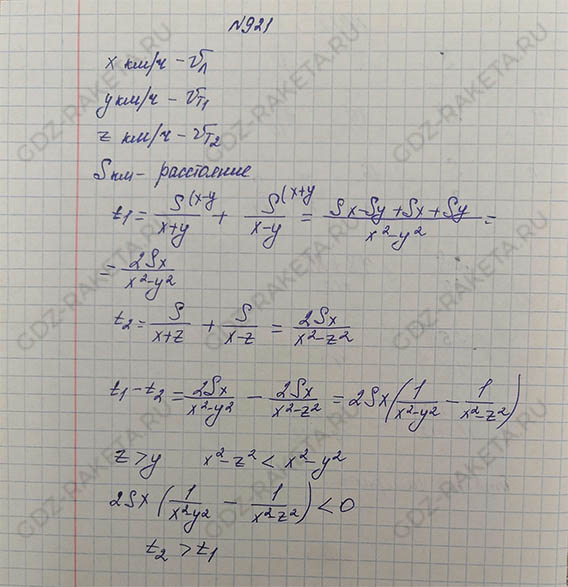 №921
x км/ч – vл
y км/ч – vт1
z км/ч – vт2
S км – расстояние
t1 = S(x-y / x+y + S(x+y / x-y = Sx-Sy+Sx+Sy / x²-y² =
= 2Sx / x²-y²
t2 = S / x+z + S / x-z = 2Sx / x²-z²
t1 - t2 = 2Sx / x²-y² - 2Sx / x²-z² = 2Sx (1 / x²-y² - 1 / x²-z²)
z > y x²-z² < x²-y²
2Sx (1 / x²-y² - 1 / x²-z²) < 0
t2 > t1
GDZ-RAKETA.RU